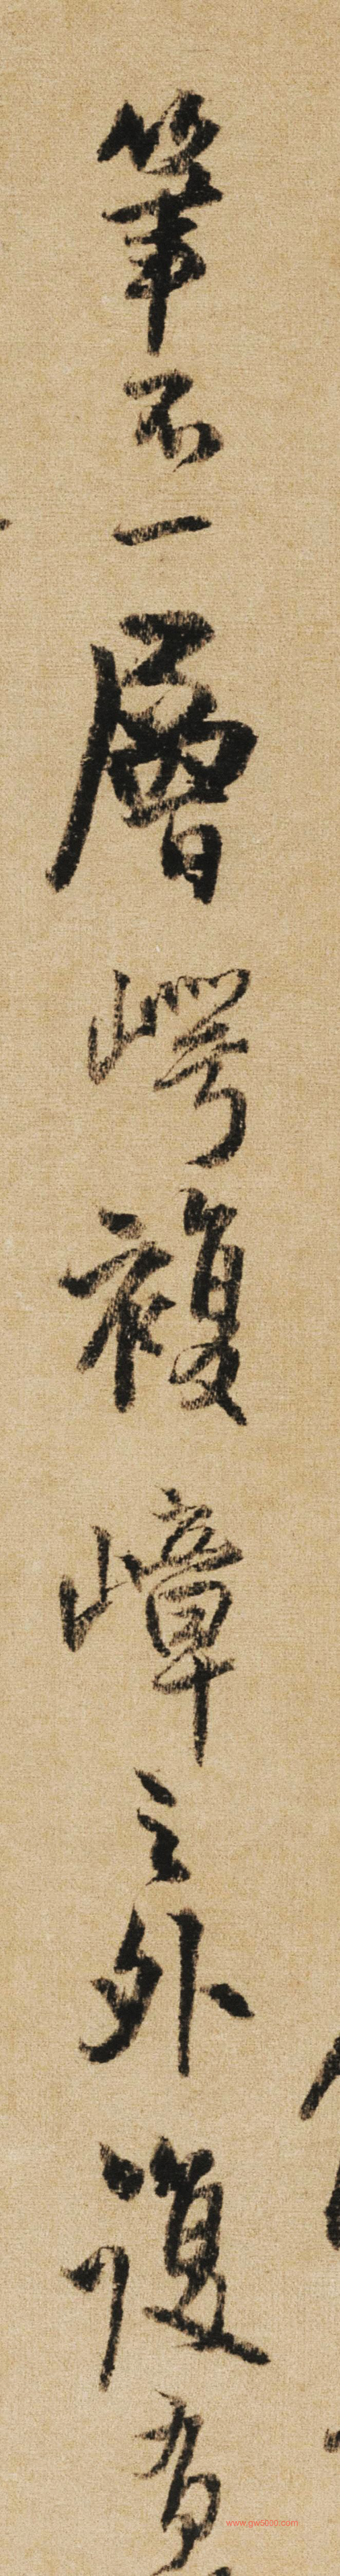 筆不一層崿複嶂之外復有
www.gw5000.com